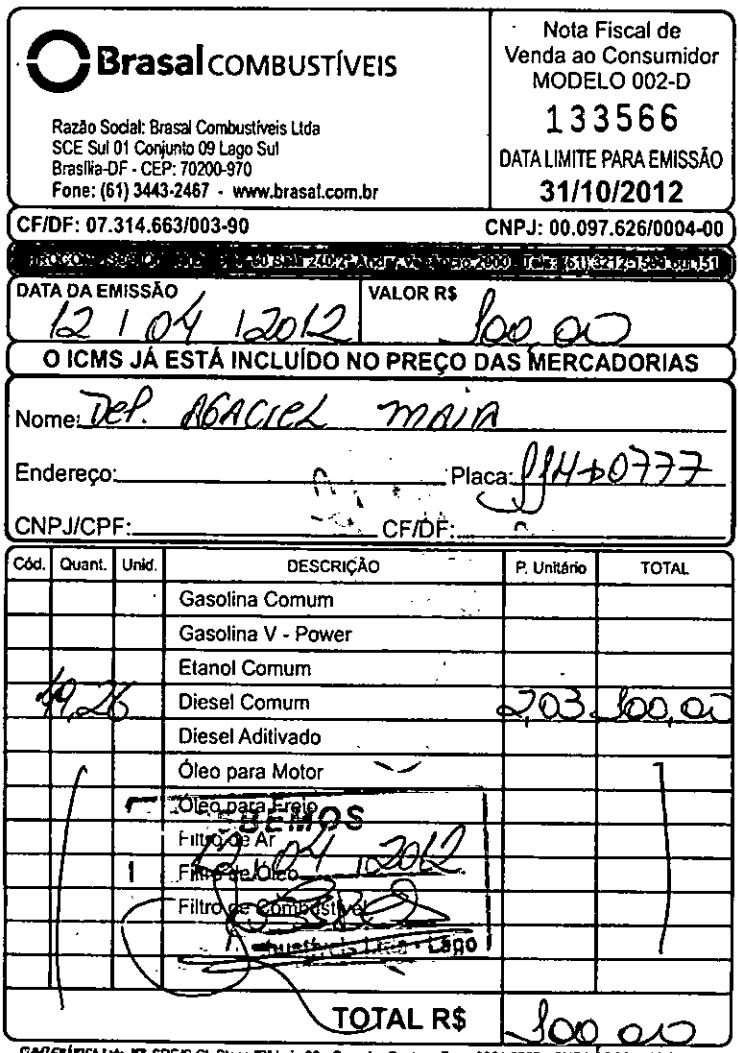 Brasal COMBUSTÍVEIS
Razão Social: Brasal Combustíveis Ltda
SCE Sul 01 Conjunto 09 Lago Sul
Brasília-DF - CEP: 70200-970
Fone: (61) 3443-2467 - www.brasal.com.br
Nota Fiscal de
Venda ao Consumidor
MODELO 002-D
133566
DATA LIMITE PARA EMISSÃO
31/10/2012
CF/DF: 07.314.663/003-90 CNPJ: 00.097.626/0004-00
DATA DA EMISSÃO VALOR R$
12 / 04 / 2012 100,00
O ICMS JÁ ESTÁ INCLUÍDO NO PREÇO DAS MERCADORIAS
Nome: Dep. AGACIEL MAIA
Endereço: Placa: 0777
CNPJ/CPF: CF/DF:
Cód. Quant. Unid. DESCRIÇÃO P. Unitário TOTAL
Gasolina Comum
Gasolina V - Power
Etanol Comum
49,26 Diesel Comum 2,03 100,00
Diesel Aditivado
Óleo para Motor
Óleo para Freio
Filtro de Ar
12 04 2012
Filtro de Óleo
Filtro de Combustível
Lago
TOTAL R$ 100,00